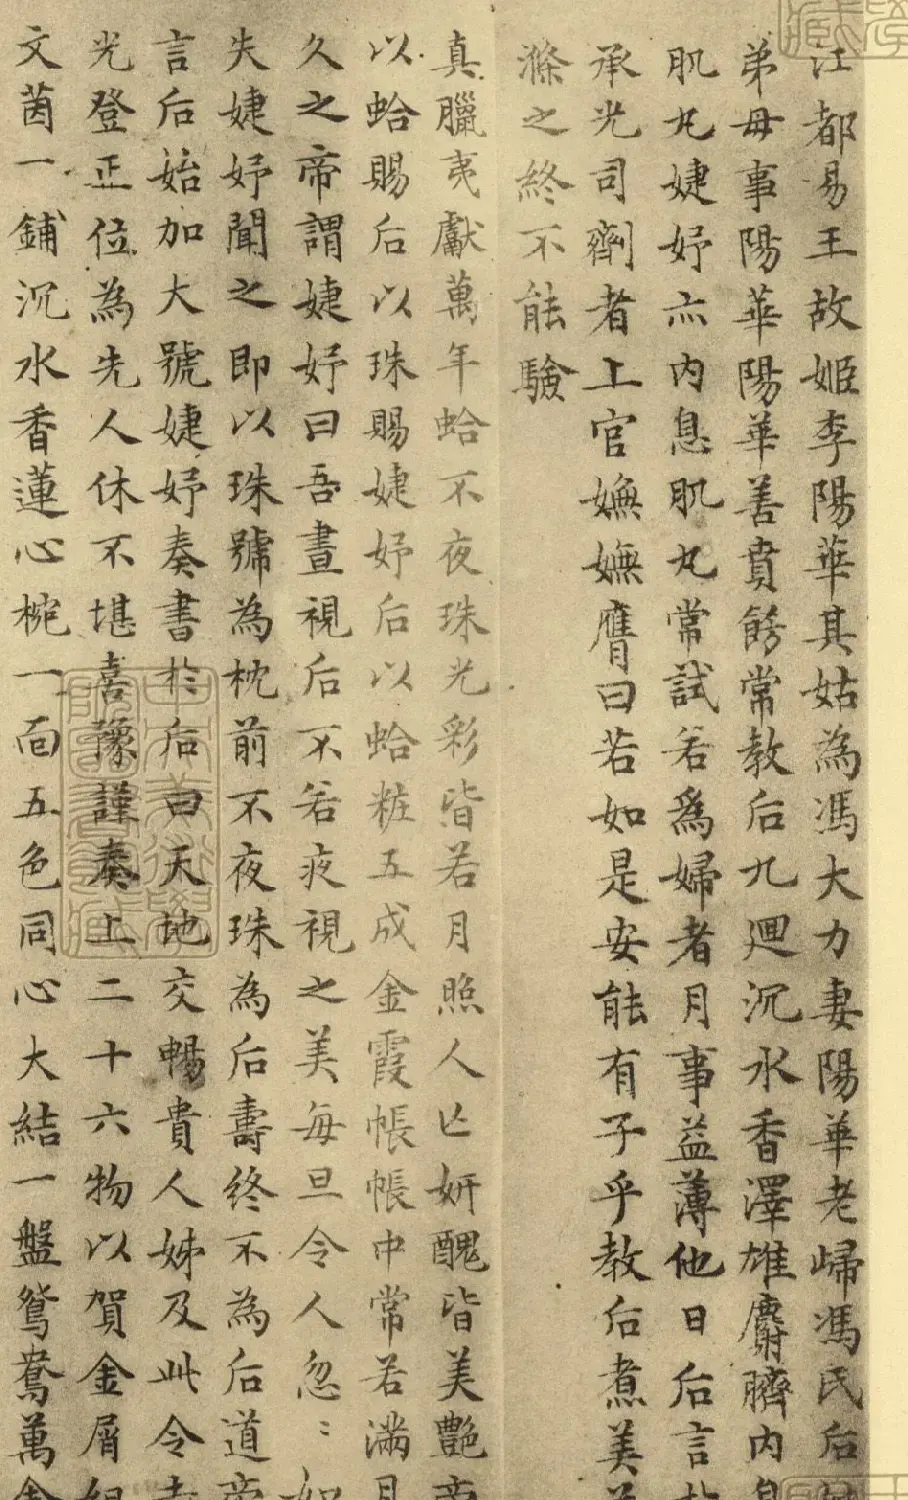 江都易王故姬李陽華其姑為馮大力妻陽華老歸馮氏后
弟母事陽華陽華善賁餙常教后九迴沉水香澤雄麝臍內息
肌丸婕妤亦内息肌丸常試若為婦者月事益薄他日后言於
承光司劑者上官嫵嫵膺曰若如是安能有子乎教后煮美
滌之終不能驗
真臘夷獻萬年蛤不夜珠光彩皆若月照人亡妍醜皆美艷帝
以蛤賜后以珠賜婕妤后以蛤粧五成金霞帳帳中常若滿月
久之帝謂婕妤曰吾晝視后不若夜視之美每旦令人忽〻
失婕妤聞之即以珠號為枕前不夜珠為后壽終不為后道帝
言后始加大號婕妤奏書於后曰天地交暢貴人姊及此令吉
光登正位為先人休不堪喜豫謹奏上二十六物以賀金屑組
文茵一鋪沉水香蓮心椀一面五色同心大結一盤鴛鴦萬金